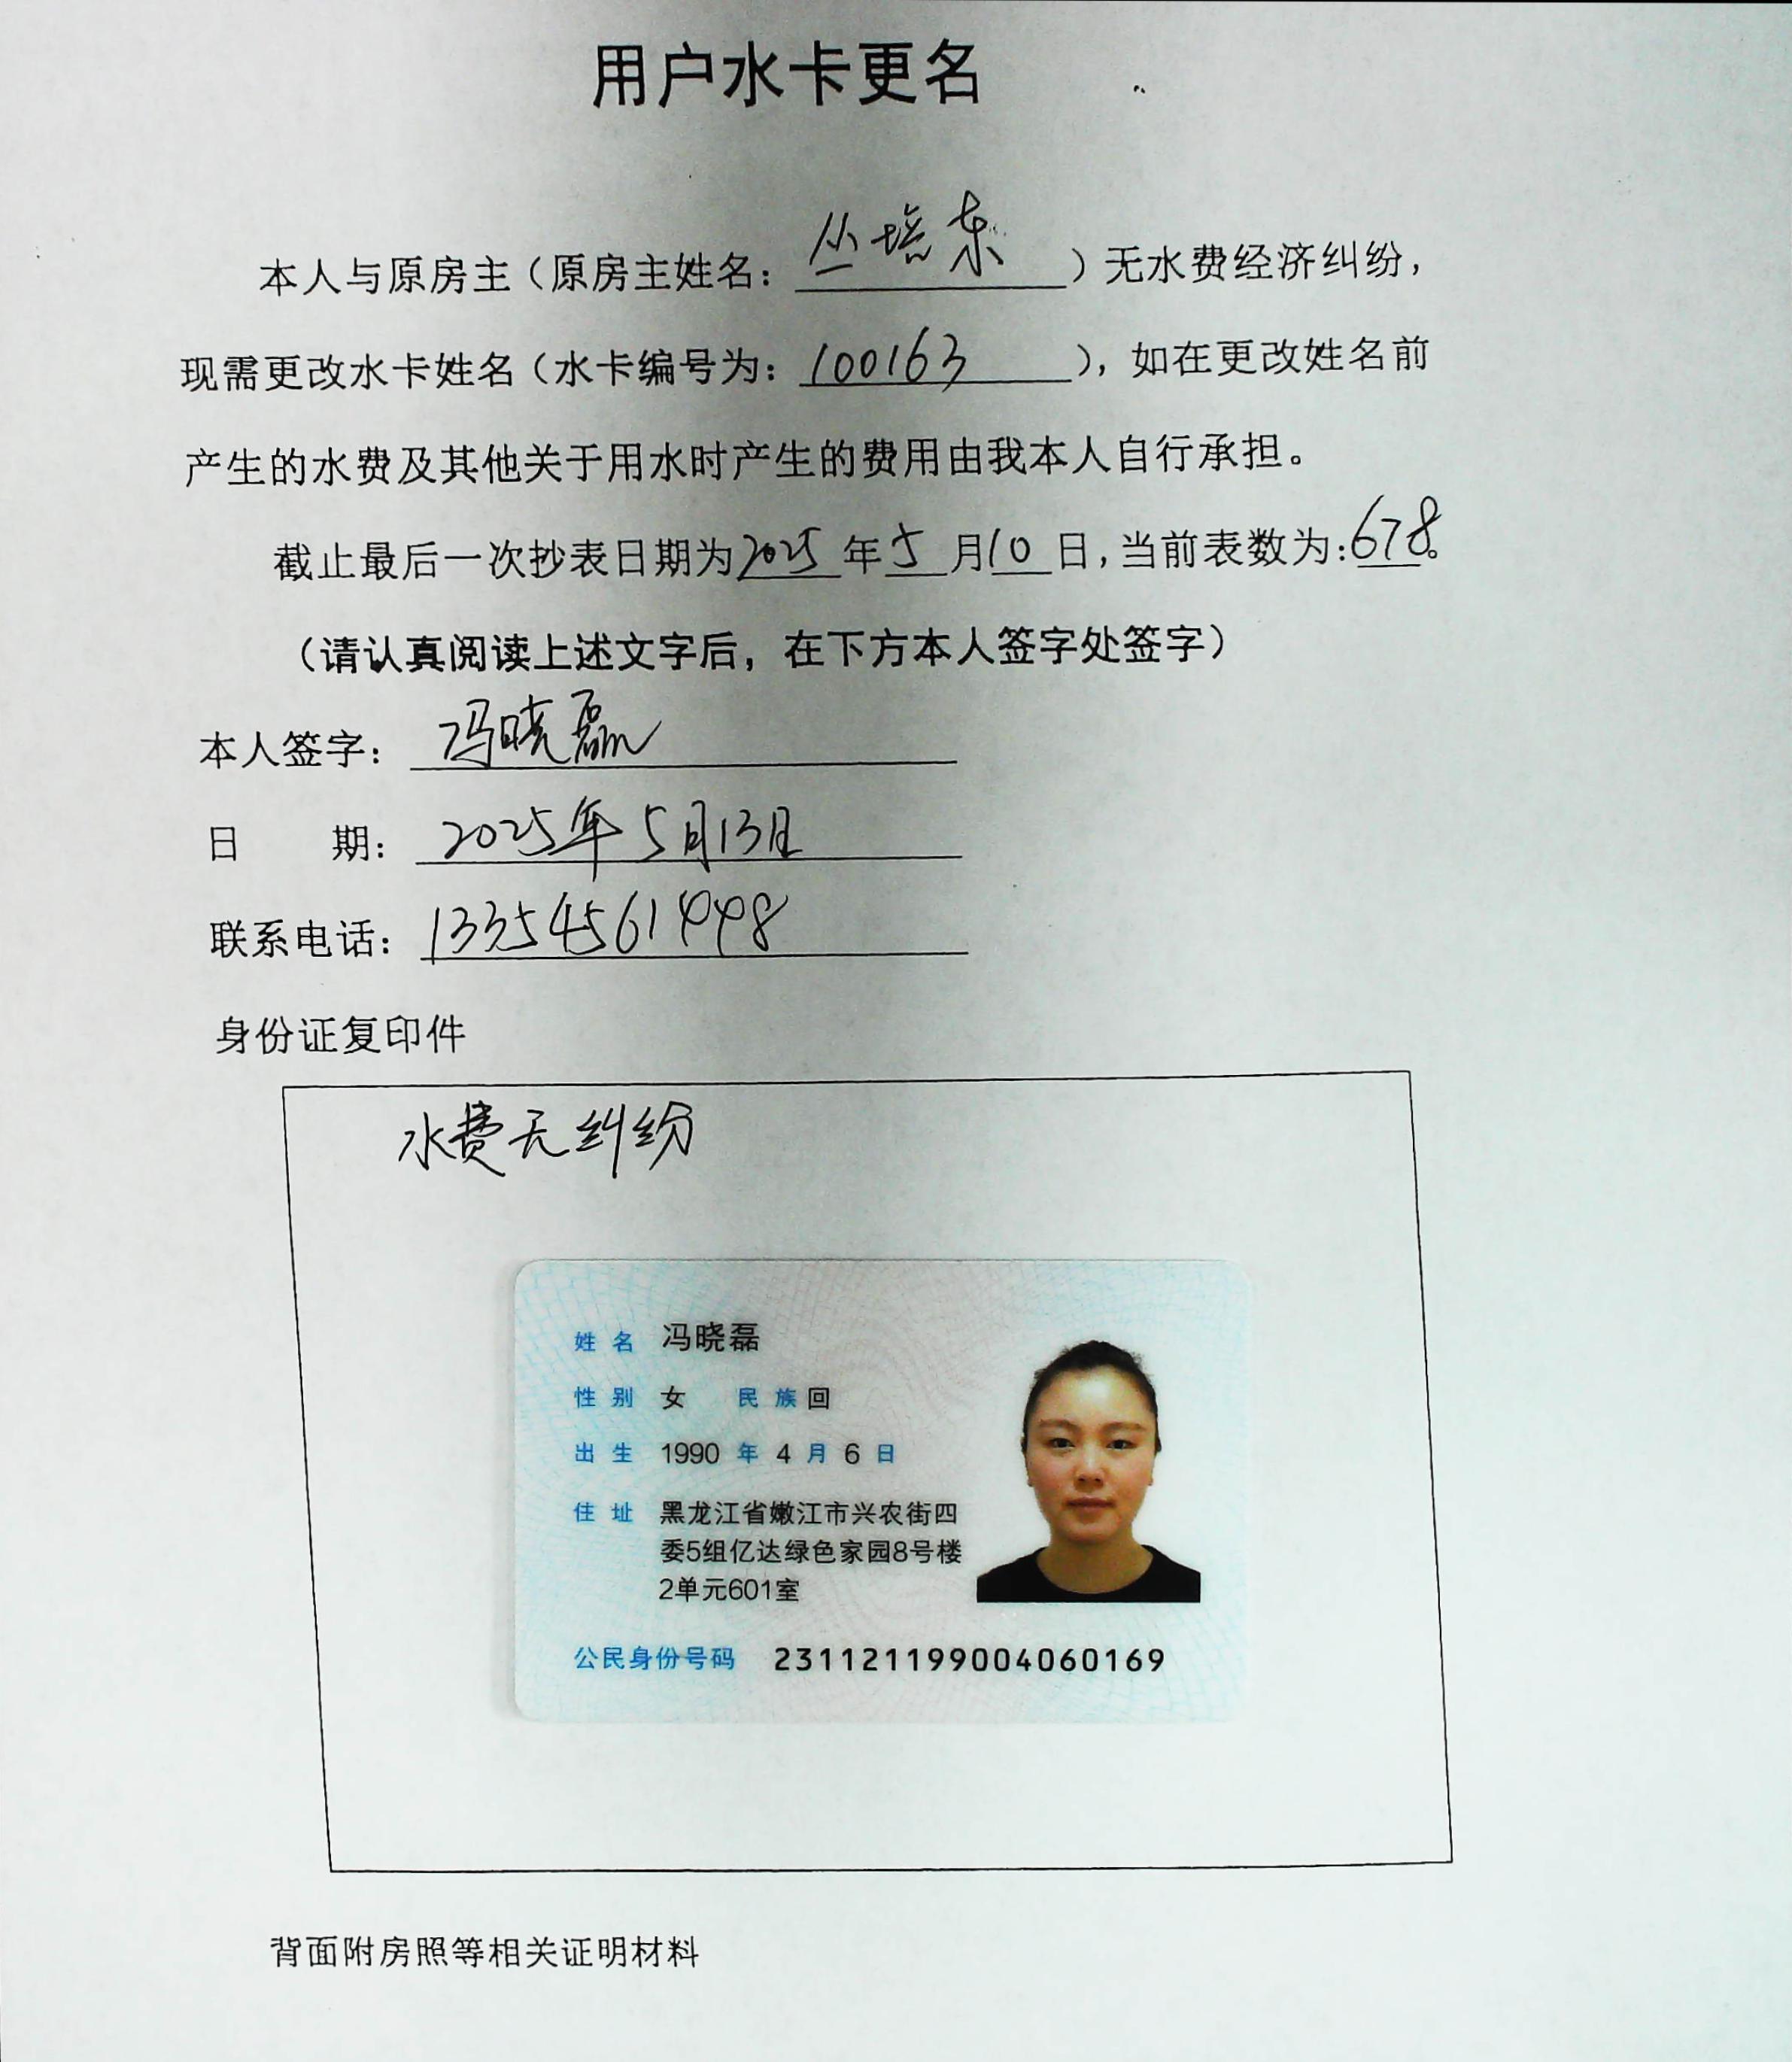 用户水卡更名
本人与原房主（原房主姓名：丛培东）无水费经济纠纷，
现需更改水卡姓名（水卡编号为：100163），如在更改姓名前
产生的水费及其他关于用水时产生的费用由我本人自行承担。
截止最后一次抄表日期为2025年5月10日，当前表数为：678。
（请认真阅读上述文字后，在下方本人签字处签字）
本人签字：冯晓磊
日 期：2025年5月13日
联系电话：13354561448
身份证复印件
水费无纠纷
姓名 冯晓磊
性别 女 民族 回
出生 1990 年 4 月 6 日
住址 黑龙江省嫩江市兴农街四
委5组亿达绿色家园8号楼
2单元601室
公民身份号码 231121199004060169
背面附房照等相关证明材料